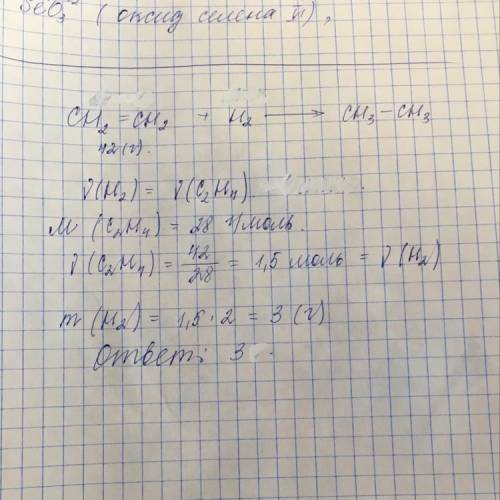 SeO3 (оксид селена VI),
CH2 = CH2 + H2 ⟶ CH3 - CH3
42 (г).
ν(H2) = ν(C2H4)
M (C2H4) = 28 г/моль.
ν(C2H4) = 42/28 = 1,5 моль = ν(H2)
m (H2) = 1,5 · 2 = 3 (г)
Ответ: 3